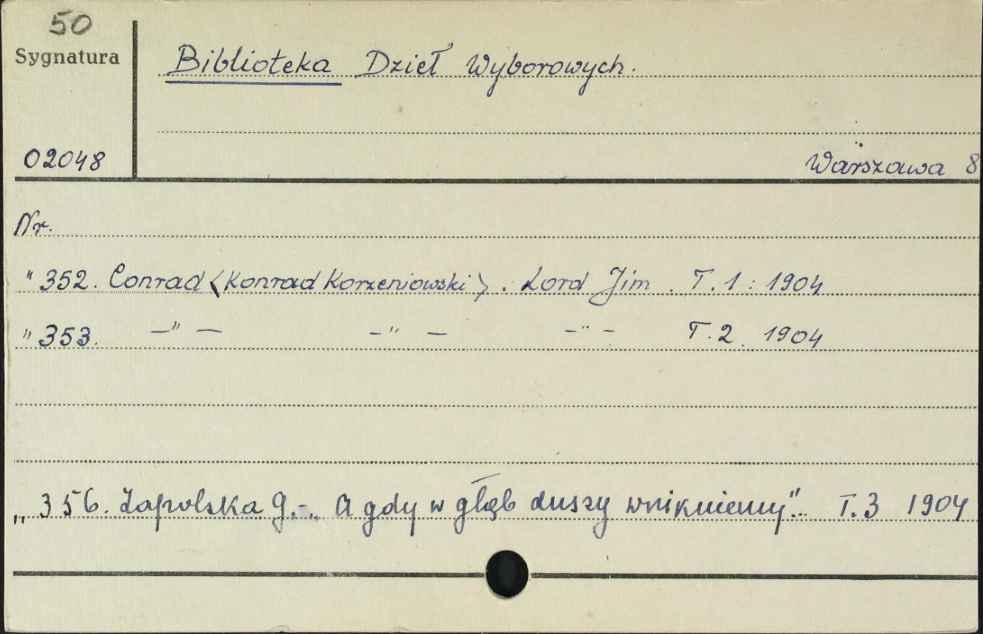 50
Sygnatura
Biblioteka Dzieł Wyborowych.
02048
Warszawa 8
Nr.
" 352. Conrad <Konrad Korzeniowski>. Lord Jim. T.1: 1904
" 353. —"— —"— —"— T.2. 1904
„ 356. Zapolska G.-„A gdy w głąb duszy wnikniemy". T.3 1904